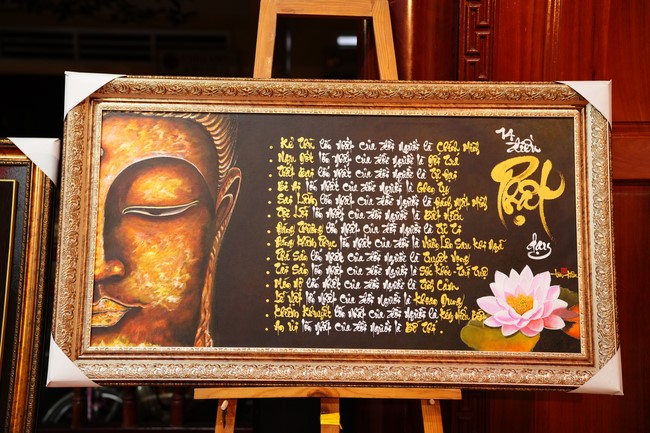 14 điều
Phật
dạy
. Kẻ Thù lớn nhất của đời người là Chính Mình
. Ngu Dốt lớn nhất của đời người là Dối Trá
. Thất Bại lớn nhất của đời người là Tự Đại
. Bi Ai lớn nhất của đời người là Ghen Tỵ
. Sai Lầm lớn nhất của đời người là Đánh Mất Mình
. Tội Lỗi lớn nhất của đời người là Bất Hiếu
. Đáng Thương lớn nhất của đời người là Tự Ti
. Đáng Khâm Phục lớn nhất của đời người là Vươn Lên Sau Khi Ngã
. Phá Sản lớn nhất của đời người là Tuyệt Vọng
. Tài Sản lớn nhất của đời người là Sức Khỏe - Trí Tuệ
. Món Nợ lớn nhất của đời người là Tình Cảm
. Lễ Vật lớn nhất của đời người là Khoan Dung
. Khiếm Khuyết lớn nhất của đời người là Kém Hiểu Biết
. An Ủi lớn nhất của đời người là Bố Thí.